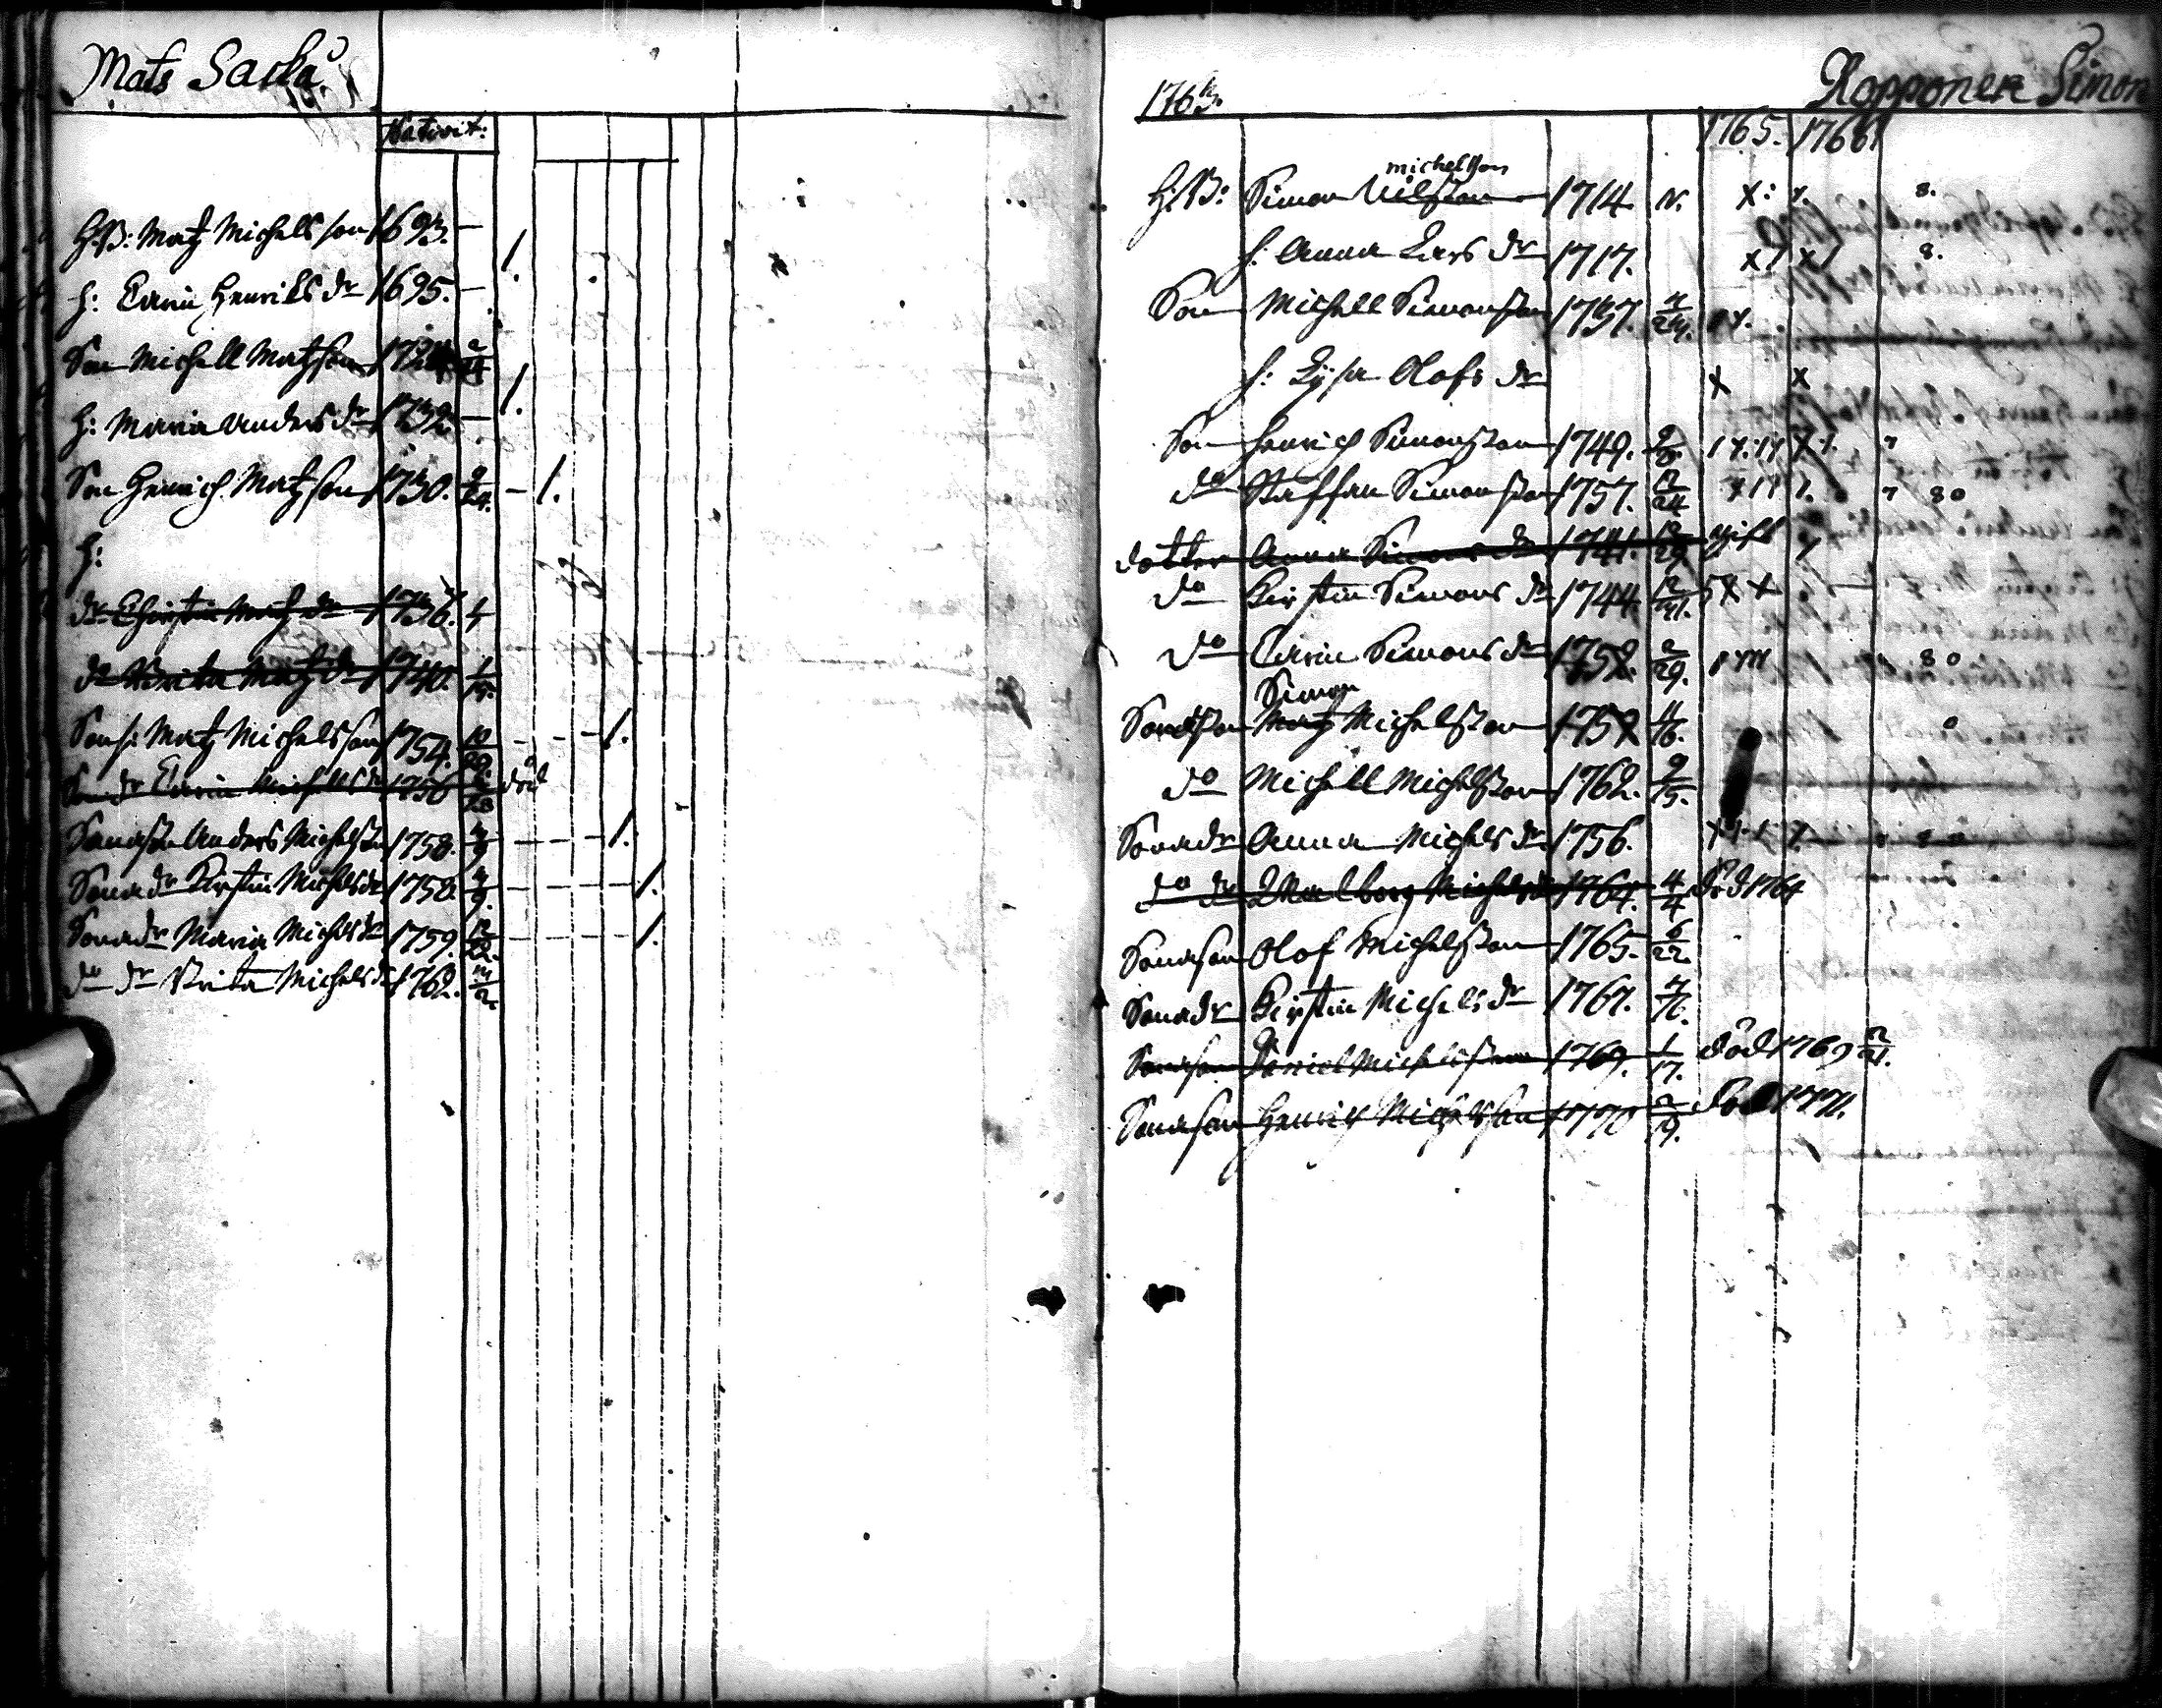 Mats Sarka
Nativit:
H:B: Matz Michellsson 1693. —
h: Carin Henrichs dr 1695. —
Son Michell Matzson
h: Maria Anders dr 1732. —
Son Henrich Matzson 1730. 9/24. — 1.
h:
dr Christin Matz dr 1736. 4
dr Brita Matz dr 1740. 1/15.
Sons: Matz Michelsson 1754. 10/20. - - - 1.
Son dr Carin Michells dr 1756 död
Sonason Anders Michelsson 1758. - - - 1.
Sonadr Kirstin Michelsdr 1758. 4/9. - - - 1.
Sonadr Maria Michelsdr 1759. 12/22. - - - 1.
do dr Brita Michelsdr 1762. 3/2.
1763.
Ropponen Simon
1765. 1766
michelson
H:B: Simon Nilsson 1714 N. x: 8.
h: Anna Lars dr 1717. 8.
Son Michell Simonsson 1737.
h: Lijsa Olofs dr x x
Son Henrich Simonsson 1749.
do Staffan Simonsson 1757. 12/24 80
dotter Anna Simons dr 1741. 12/29 gift
do Kirstin Simons dr 1744. 12/31.
do Carin Simons dr 1758. 2/29. 80
Simon
Sonason Matz Michelsson 1757 0
do Michell Michelsson 1762. 9/15.
Sonadr Anna Michels dr 1756.
do dr Walborg Michelsdr 1764. 4/4 död 1764
Sonason Olof Michelsson 1765. 6/22.
Sonadr Kirstin Michelsdr 1767.
Sonason Daniel Michelsson 1769. 1/17. död 1769 2/21.
Sonason Henrich Michelsson 1770 2/19. död 1771.